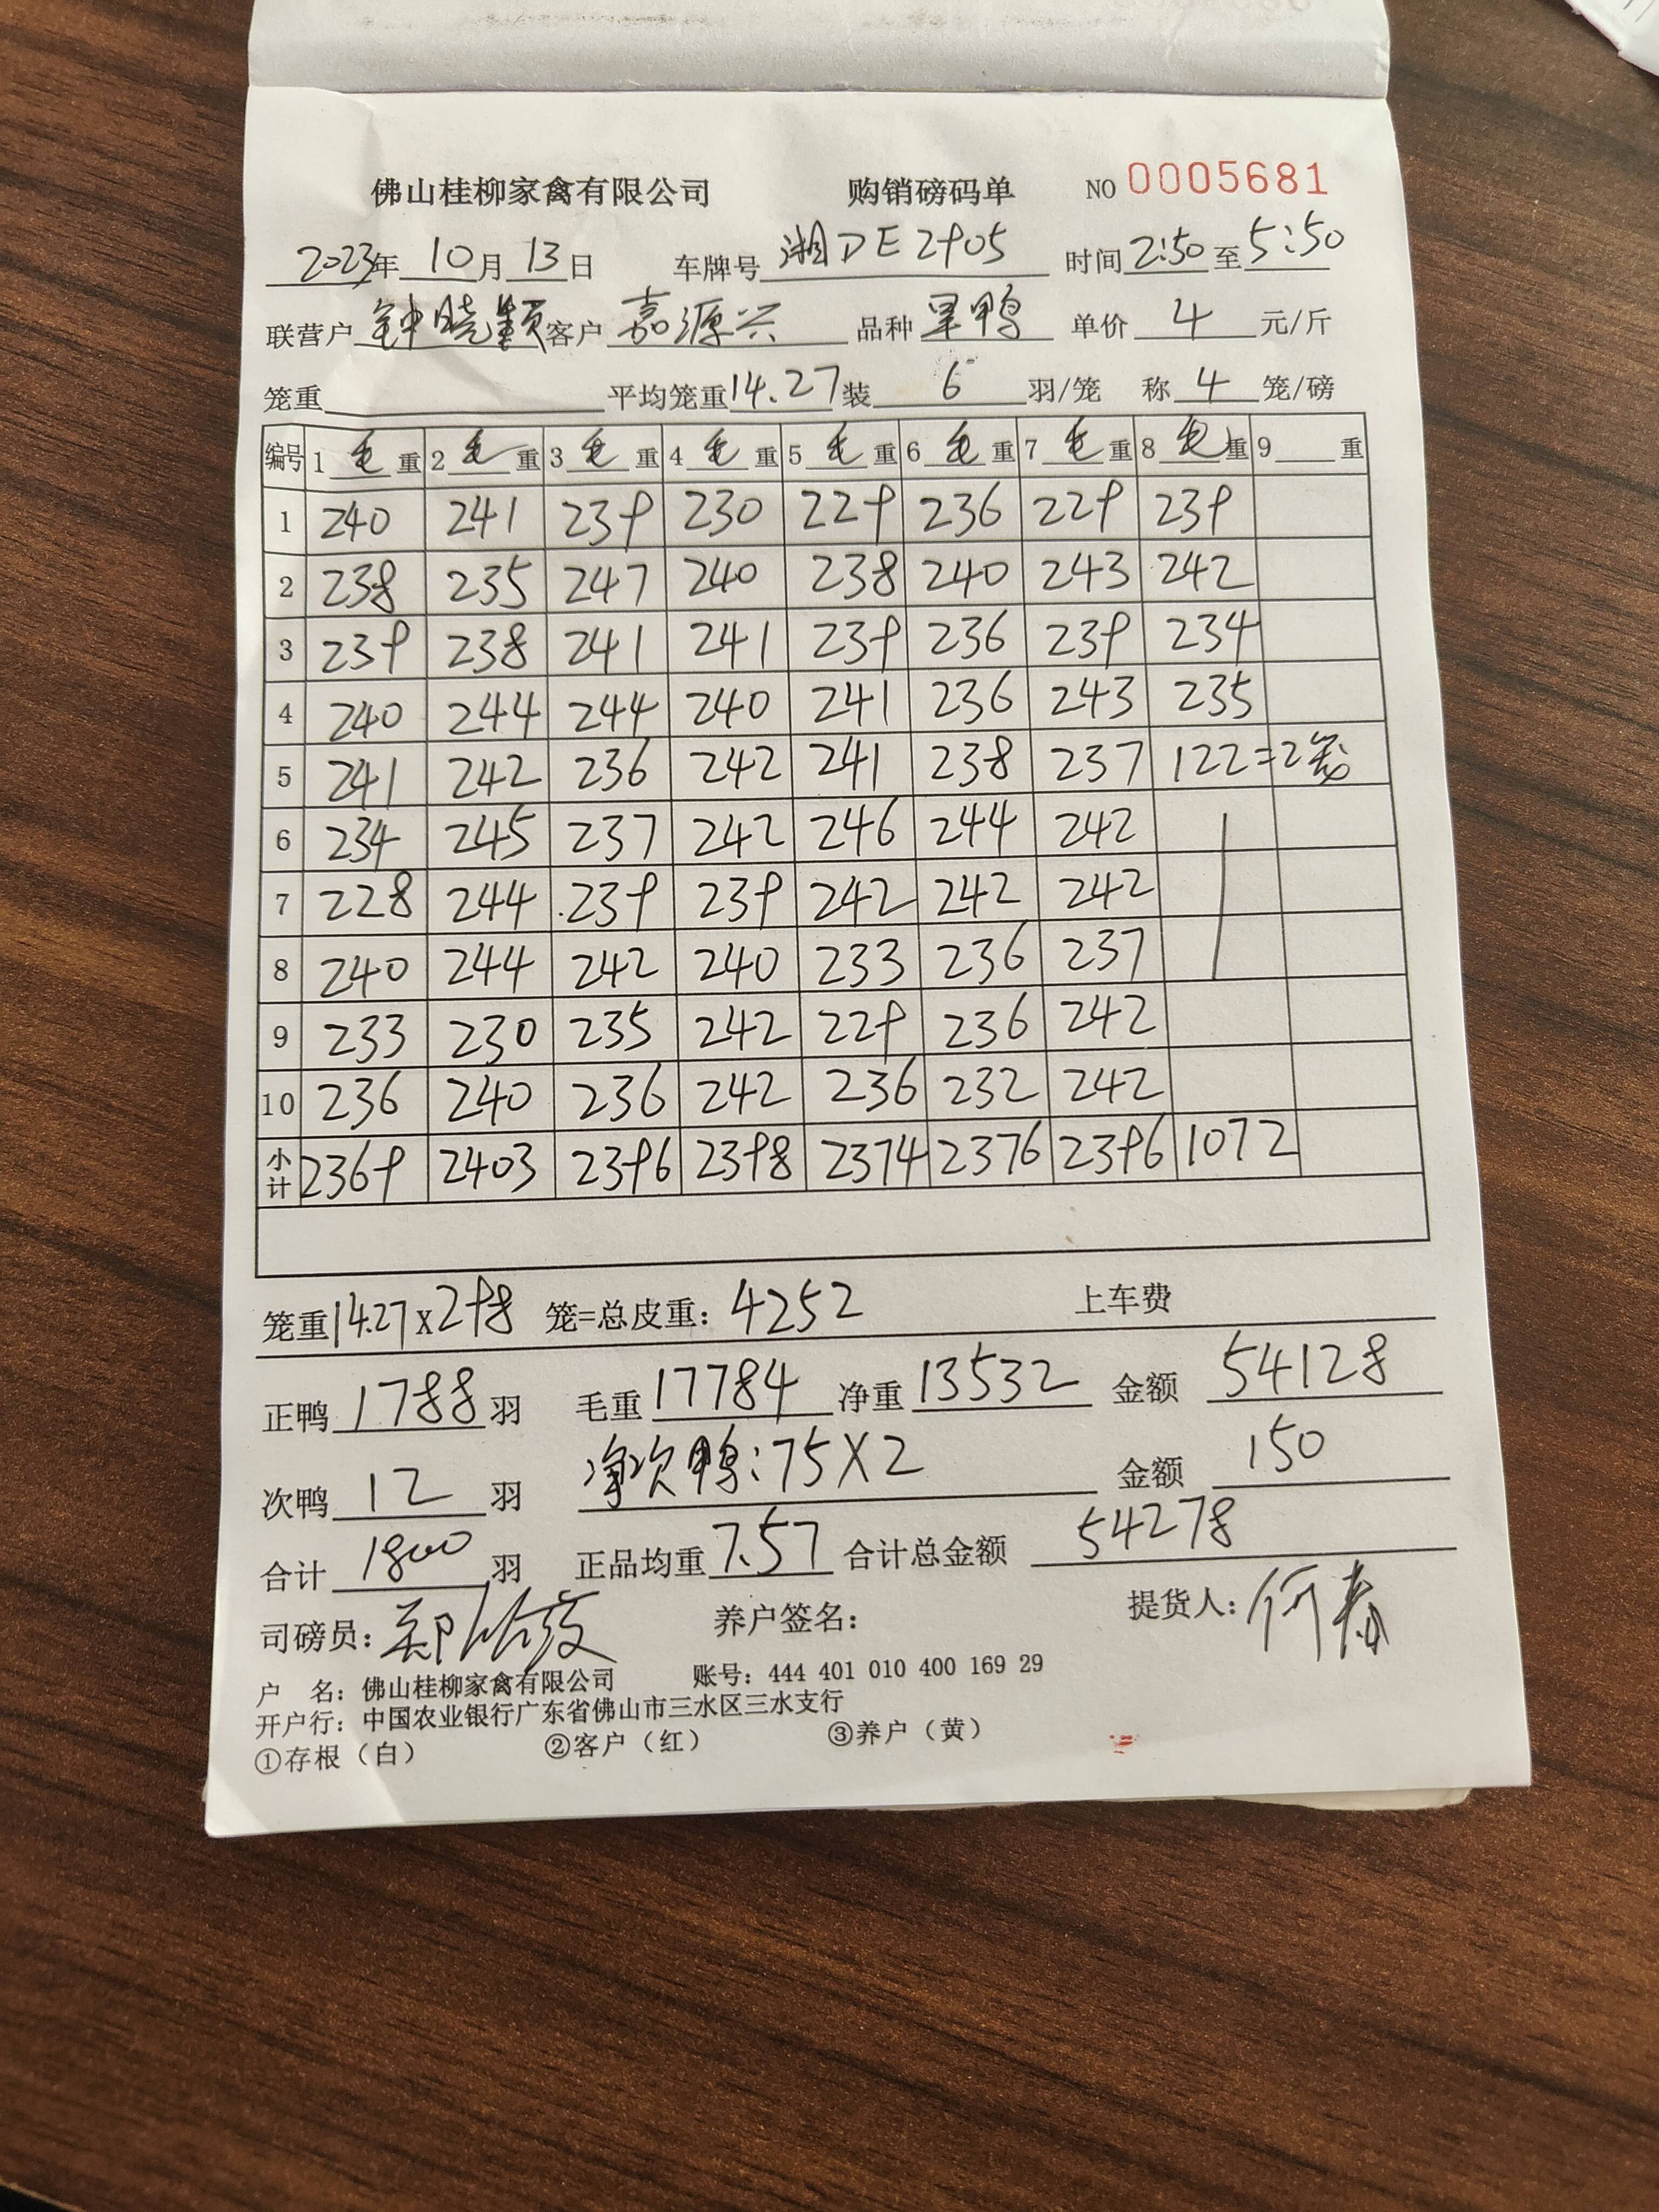 佛山桂柳家禽有限公司 购销磅码单 NO 0005681
2023年 10月 13日 车牌号 湘DE2905 时间 2:50 至 5:50
联营户 钟晓颖 客户 嘉源兴 品种 旱鸭 单价 4 元/斤
笼重 平均笼重 14.27 装 6 羽/笼 称 4 笼/磅
编号 1 毛 重 2 毛 重 3 毛 重 4 毛 重 5 毛 重 6 毛 重 7 毛 重 8 毛 重 9 重
1 240 241 239 230 229 236 229 239
2 238 235 247 240 238 240 243 242
3 239 238 241 241 239 236 239 234
4 240 244 244 240 241 236 243 235
5 241 242 236 242 241 238 237 122=2笼
6 234 245 237 242 246 244 242
7 228 244 239 239 242 242 242
8 240 244 242 240 233 236 237
9 233 230 235 242 229 236 242
10 236 240 236 242 236 232 242
小计 2369 2403 2396 2398 2374 2376 2396 1072
笼重 14.27 X 298 笼=总皮重: 4252 上车费
正鸭 1788 羽 毛重 17784 净重 13532 金额 54128
次鸭 12 羽 净次鸭:75X2 金额 150
合计 1800 羽 正品均重 7.57 合计总金额 54278
司磅员: 郑 养户签名: 提货人: 何春
户 名: 佛山桂柳家禽有限公司 账号: 444 401 010 400 169 29
开户行: 中国农业银行广东省佛山市三水区三水支行
①存根（白） ②客户（红） ③养户（黄）